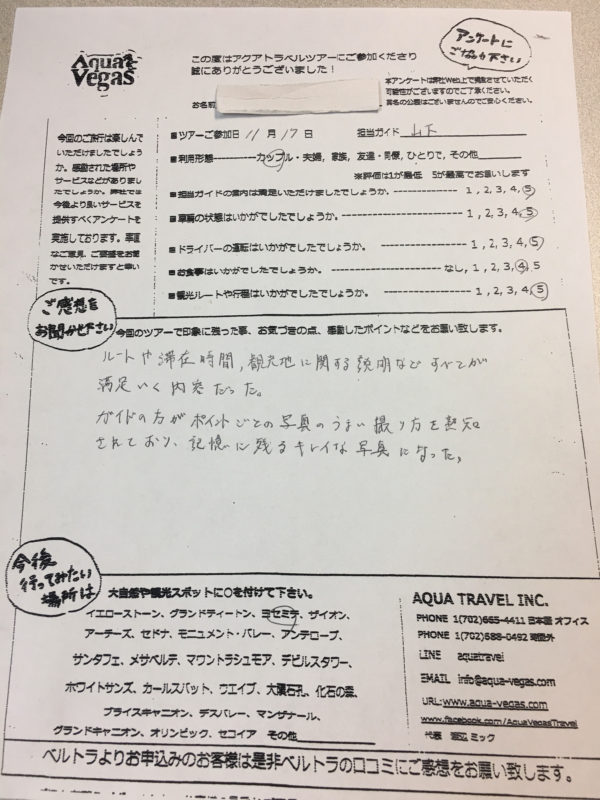 Aqua Vegas
この度はアクアトラベルツアーにご参加くださり
誠にありがとうございました！
アンケートに
ご協力下さい
本アンケートは弊社Web上で掲載させていただく
可能性がございますのでご了承ください。
実名の公開はございませんのでご安心ください。
お名前
今回のご旅行は楽しんで
いただけましたでしょう
か。感動された場所や
サービスなどがありまし
たでしょうか。弊社では
今後より良いサービスを
提供すべくアンケートを
実施しております。率直
なご意見、ご感想をお聞
かせいただけますと幸い
です。
■ツアーご参加日 11 月 17 日 担当ガイド 山下
■利用形態-----------カップル・夫婦, 家族, 友達・同僚, ひとりで, その他
※評価は1が最低 5が最高でお願いします
■担当ガイドの案内は満足いただけましたでしょうか。------------ 1 , 2, 3, 4, 5
■車輌の状態はいかがでしたでしょうか。---------------------- 1 , 2, 3, 4, 5
■ドライバーの運転はいかがでしたでしょうか。---------------- 1 , 2, 3, 4, 5
■お食事はいかがでしたでしょうか。-------------------- なし, 1, 2, 3, 4, 5
■観光ルートや行程はいかがでしたでしょうか。---------------- 1, 2, 3, 4, 5
ご感想を
お聞かせ下さい
今回のツアーで印象に残った事、お気づきの点、感動したポイントなどをお願い致します。
ルートや滞在時間,観光地に関する説明などすべてが
満足いく内容だった。
ガイドの方がポイントごとの写真のうまい撮り方を熟知
されており、記憶に残るキレイな写真になった。
今後
行ってみたい
場所は
大自然や観光スポットに〇を付けて下さい。
イエローストーン、グランドティートン、ヨセミテ、ザイオン、
アーチーズ、セドナ、モニュメント・バレー、アンテロープ、
サンタフェ、メサベルテ、マウントラシュモア、デビルスタワー、
ホワイトサンズ、カールスバット、ウエイブ、大鍾石孔、化石の森、
ブライスキャニオン、デスバレー、マンザナール、
グランドキャニオン、オリンピック、セコイア その他
AQUA TRAVEL INC.
PHONE 1(702)665-4411 日本語 オフィス
PHONE 1(702)688-0492 時間外
LINE aquatravel
EMAIL info@aqua-vegas.com
URL: www.aqua-vegas.com
www.facebook.com/AquaVegasTravel
代表 渡辺 ミック
ベルトラよりお申込みのお客様は是非ベルトラの口コミにご感想をお願い致します。